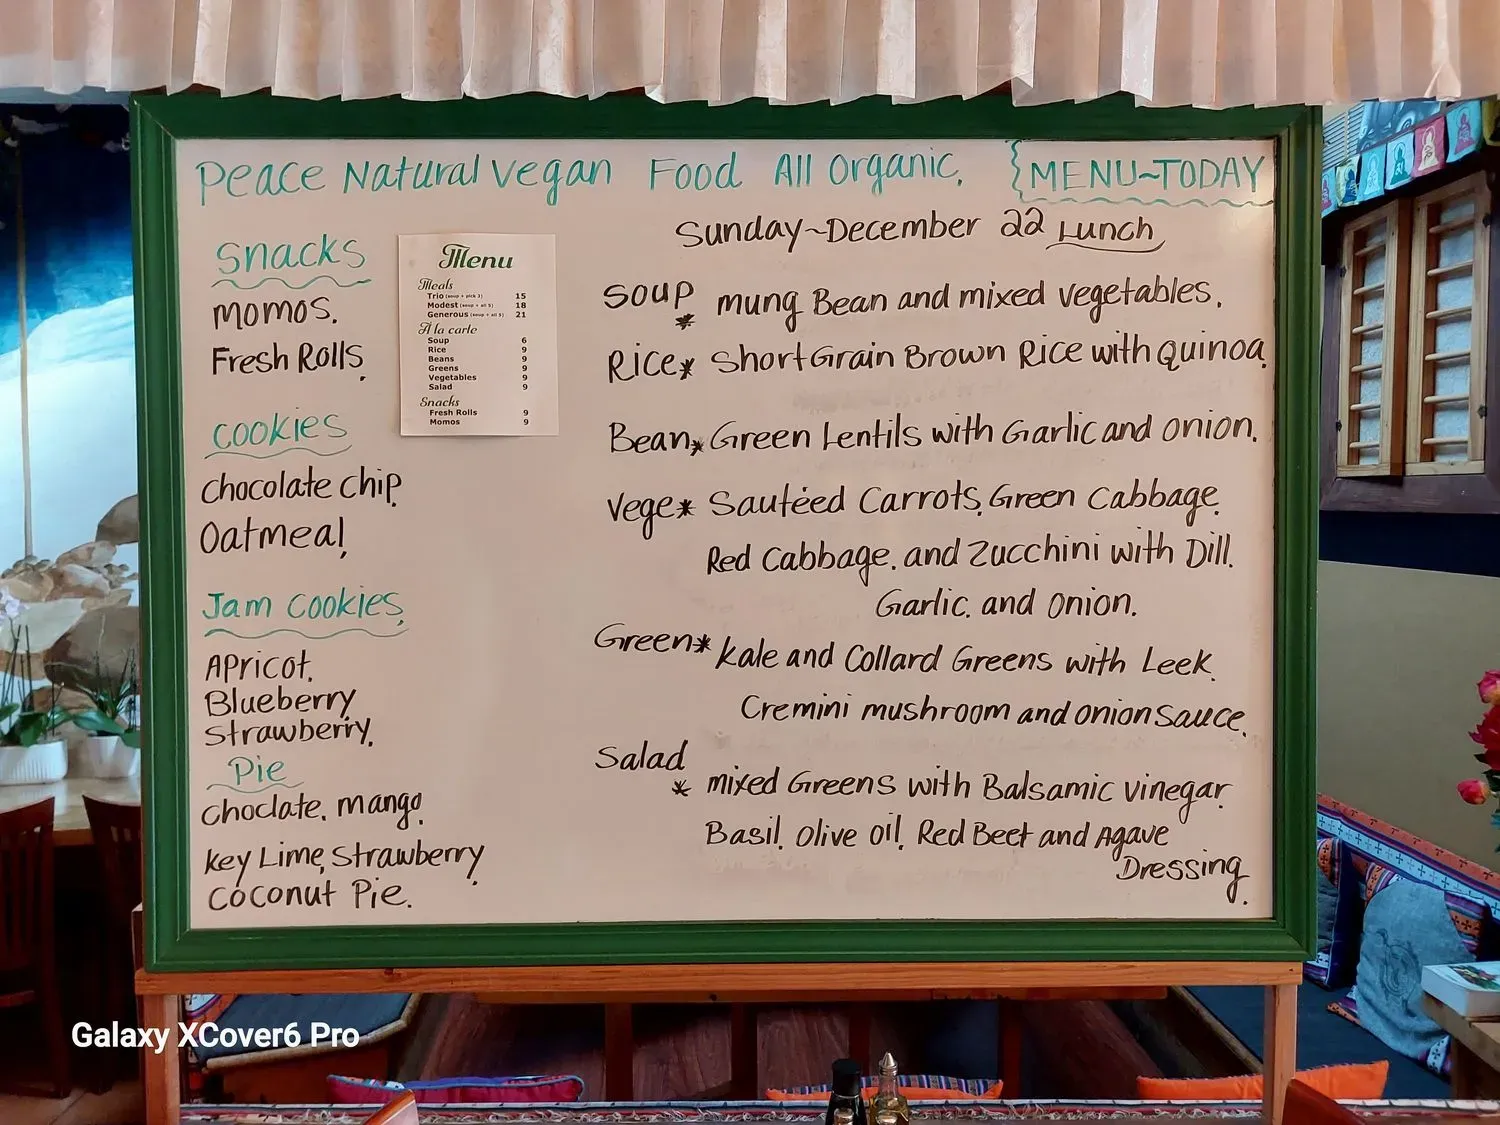 Peace Natural Vegan Food All Organic. {MENU~TODAY
Sunday~December 22 Lunch
Snacks
momos.
Fresh Rolls.
Cookies
Chocolate chip.
Oatmeal.
Jam Cookies.
APricot.
Blueberry.
Strawberry.
Pie
Choclate. mango.
Key Lime, Strawberry.
Coconut Pie.
Menu
Meals
Trio (soup + pick 3) 15
Modest (soup + all 5) 18
Generous (soup + all 5) 21
A la carte
Soup 6
Rice 9
Beans 9
Greens 9
Vegetables 9
Salad 9
Snacks
Fresh Rolls 9
Momos 9
Soup * mung Bean and mixed vegetables.
Rice* Short Grain Brown Rice with Quinoa.
Bean* Green Lentils with Garlic and onion.
Vege* Sautéed Carrots, Green Cabbage.
Red Cabbage. and Zucchini with Dill.
Garlic. and onion.
Green* Kale and Collard Greens with Leek.
Cremini mushroom and onion sauce.
Salad * mixed Greens with Balsamic vinegar.
Basil. Olive oil. Red Beet and Agave
Dressing.
Galaxy XCover6 Pro